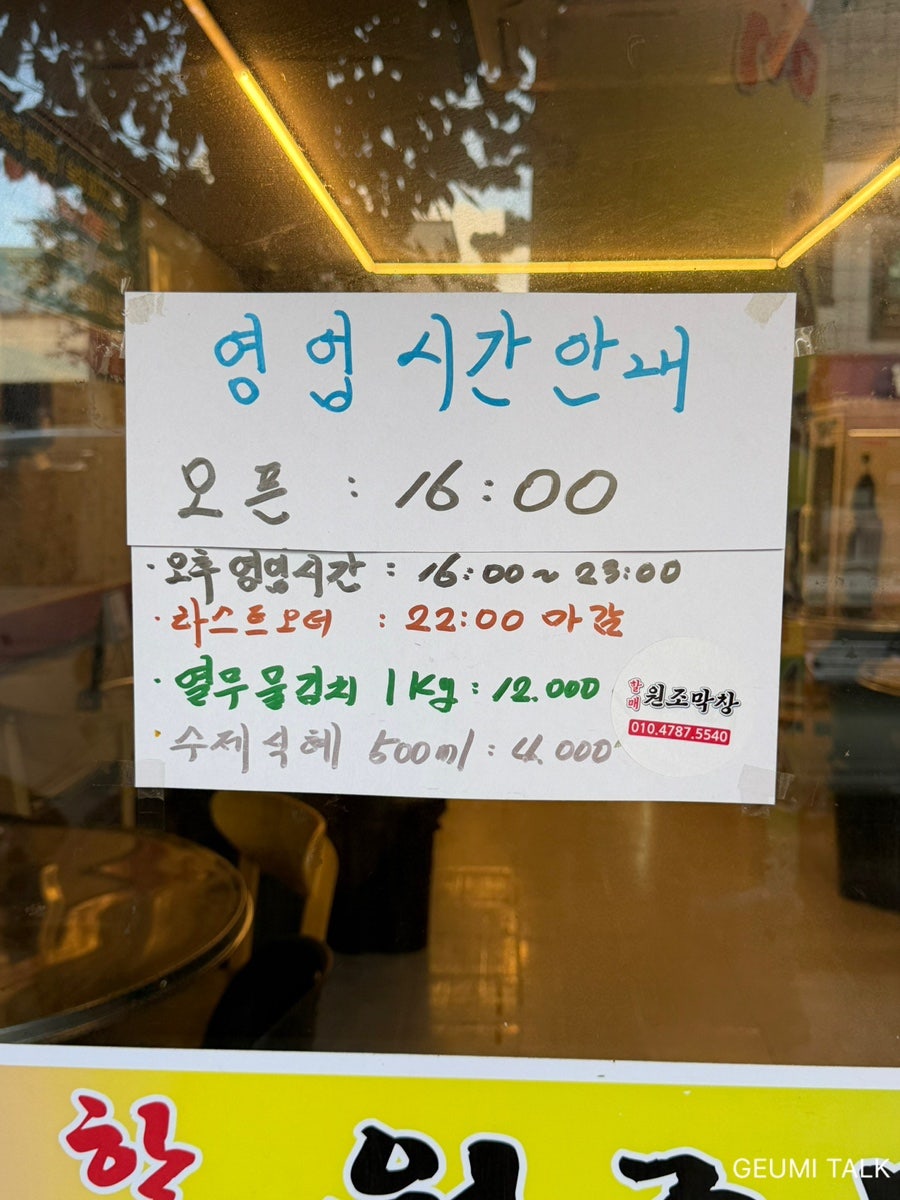 영업시간안내
오픈 : 16:00
· 오후 영업시간 : 16:00~23:00
· 라스트오더 : 22:00 마감
· 열무물김치 1Kg : 12.000
· 수제식혜 500ml : 4.000
할매 원조막창
010.4787.5540
할 원
GEUMI TALK